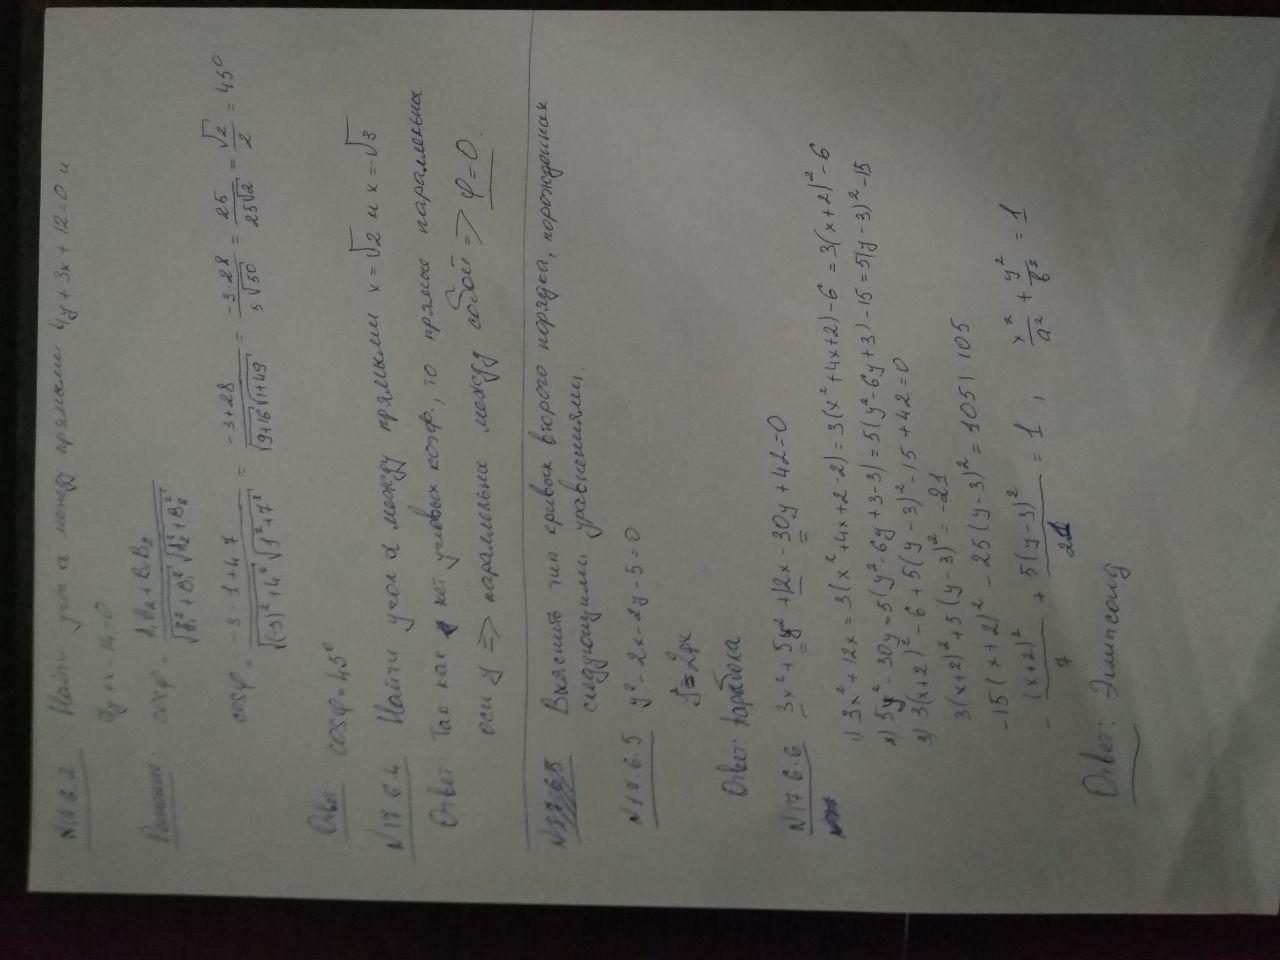 Найти угол α между прямыми 4y + 3x + 12 = 0 и
7y + x - 14 = 0
Решение: cosφ = A₁A₂ + B₁B₂ / √A₁² + B₁² √A₂² + B₂²
cosφ = -3·1+4·7 / √(-3)²+4² √1²+7² = -3+28 / √9+16 √1+49 = -3·28 / 5√50 = 25 / 25√2 = √2 / 2 = 45°
Ответ: cosφ = 45°
N 17.6.4. Найти угол α между прямыми x = √2 и x = √3
Ответ: Так как нет угловых коэф., то прямые параллельны
оси y => параллельны между собой => φ = 0.
Выяснить тип кривых второго порядка, порожденных
следующими уравнениями.
N 17.6.5 y² - 2x - 2y - 5 = 0
y² = 2px
Ответ: парабола
N 17.6.6 3x² + 5y² + 12x - 30y + 42 = 0
1) 3x² + 12x = 3(x² + 4x + 2 - 2) = 3(x² + 4x + 2) - 6 = 3(x + 2)² - 6
2) 5y² - 30y = 5(y² - 6y + 3 - 3) = 5(y² - 6y + 3) - 15 = 5(y - 3)² - 15
3) 3(x + 2)² - 6 + 5(y - 3)² - 15 + 42 = 0
3(x + 2)² + 5(y - 3)² = -21
-15(x + 2)² - 25(y - 3)² = 105 | : 105
- (x + 2)² / 7 + 5(y - 3)² / 21 = 1 ; x² / a² + y² / b² = 1
Ответ: Эллипсоид